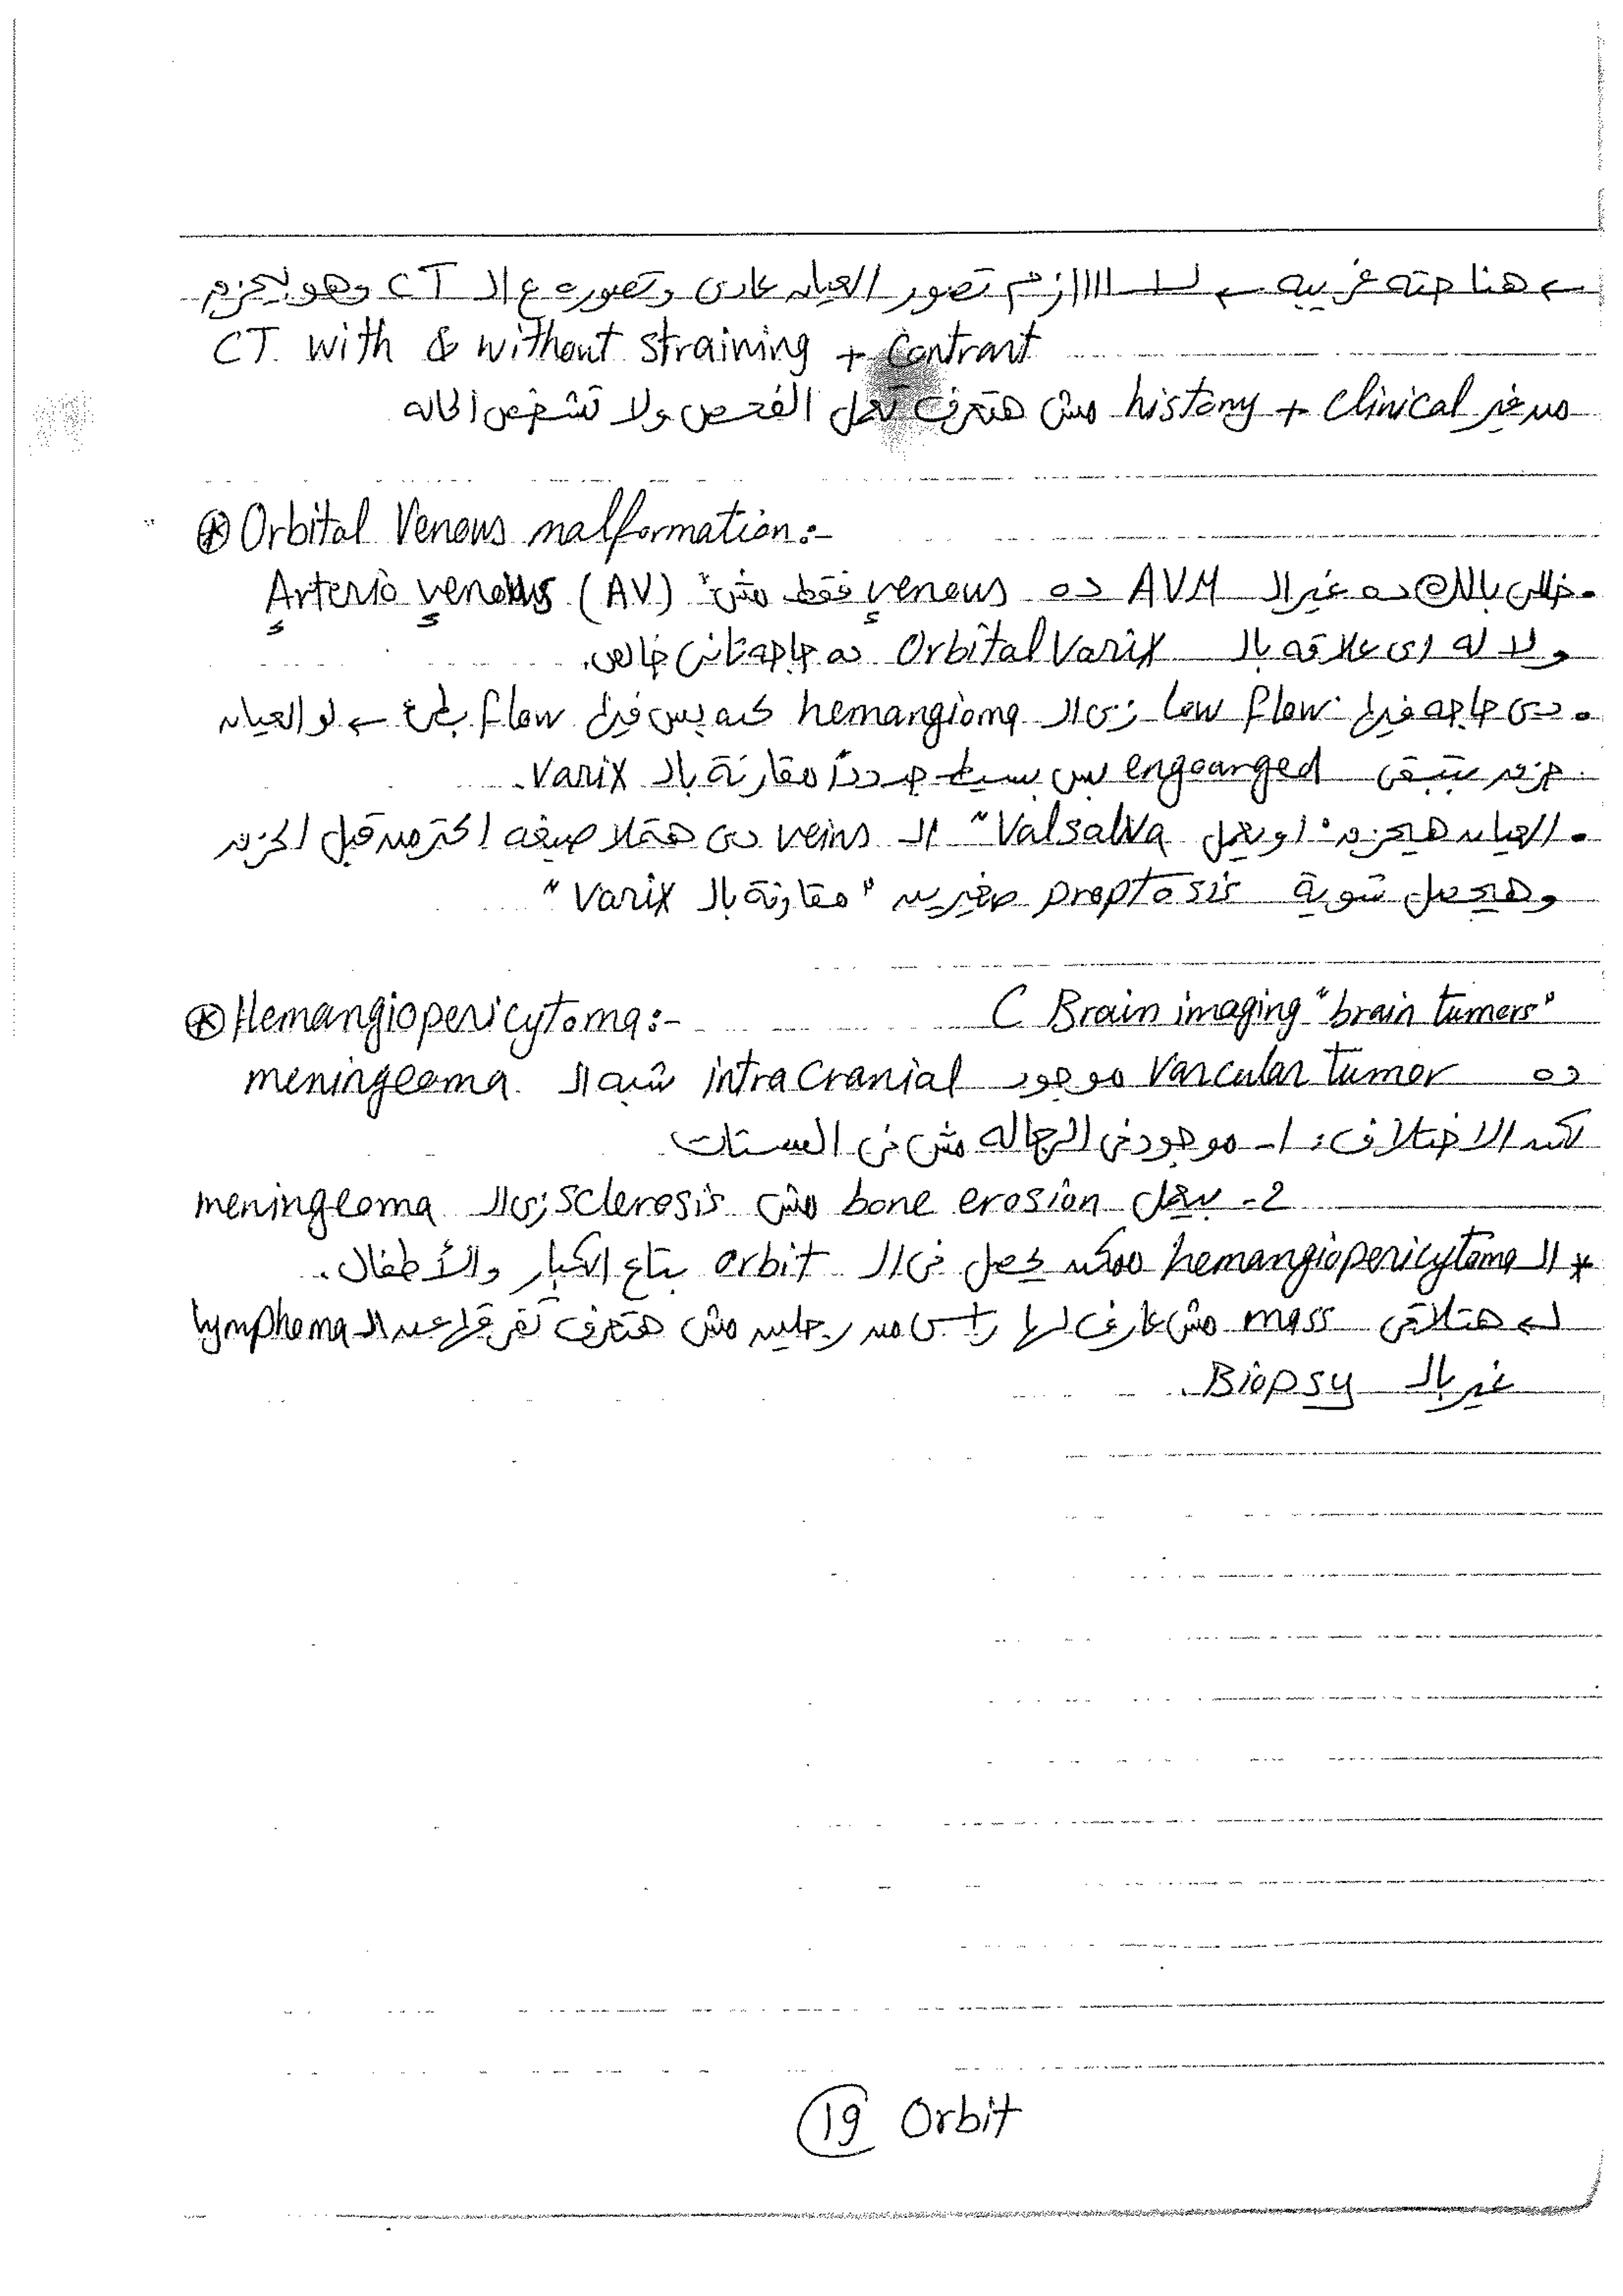 ← هنا حته غريبه ← لـــا اااازم تصور العيان عادى وتصوره ع الـ CT وهو بيحزم
CT with & without straining + Contrast
من غير history + clinical مش هتعرف تعمل الفحص ولا تشخص الحاله
* Orbital Venous malformation:-
• خللى بالك ده غير الـ AVM ده venous فقط مش Arterio venous (AV)
ولا له اى علاقه بالـ Orbital Varix ده حاجه تانى خالص.
• دى حاجه فيها low flow زى الـ hemangioma كده بس فيها flow بطئ ← لو العيان
حزم بتبقى engourged بس بسيط جدداً مقارنة بالـ Varix.
• العيان هيحزم او يعمل "Valsalva" الـ veins دى هتملا صبغه اكتر من قبل الحزم
وهيحصل شوية proptosis صغيرين "مقارنة بالـ Varix"
* Hemangiopericytoma:- C Brain imaging "brain tumors"
ده Vascular tumor موجود intracranial شبه الـ meningeoma.
لكن الاختلاف: 1- موجود فى الرجاله مش فى الستات
2- بيعمل bone erosion مش sclerosis زى الـ meningeoma
* الـ hemangiopericytoma ممكن يحصل فى الـ orbit بتاع الكبار والأطفال.
↳ هتلاقى mass مش عارف لها راس من رجلين مش هتعرف تفرقها عن الـ lymphoma
غير بالـ Biopsy.
19 Orbit